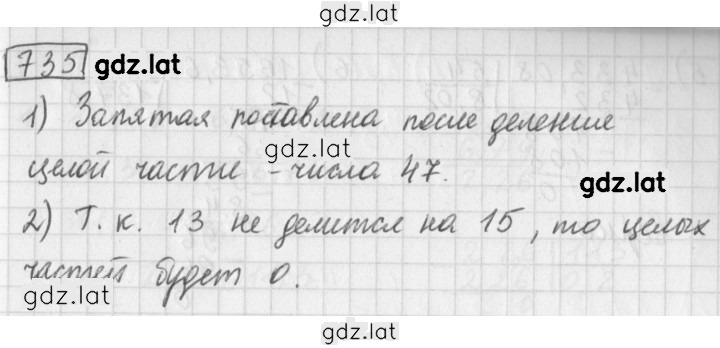 gdz.lat
735 gdz.lat
1) Запятая поставлена после деление
gdz.lat
целой части - числа 47.
gdz.lat
2) Т. к. 13 не делится на 15, то целых
частей будет 0.
gdz.lat
gdz.lat